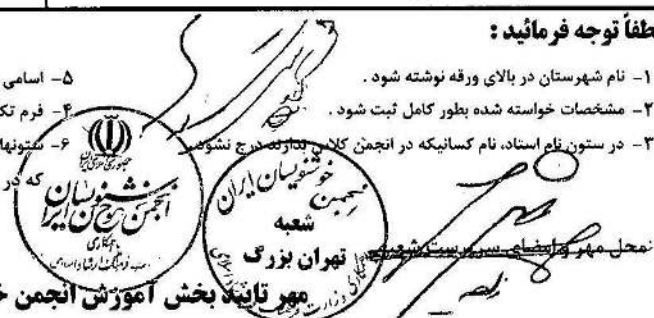 لطفاً توجه فرمائید :
۱- نام شهرستان در بالای ورقه نوشته شود .
۵- اسامی
۲- مشخصات خواسته شده بطور کامل ثبت شود .
۴- فرم تک
۳- در ستون نام استاد، نام کسانیکه در انجمن کلاس ندارند درج نشود .
۶- ستونها
که در
انجمن خوشنویسان ایران
با همکاری
انجمن خوشنویسان ایران
شعبه
تهران بزرگ
محل مهر و امضای سرپرست شعبه
مهر تایید بخش آموزش انجمن خ